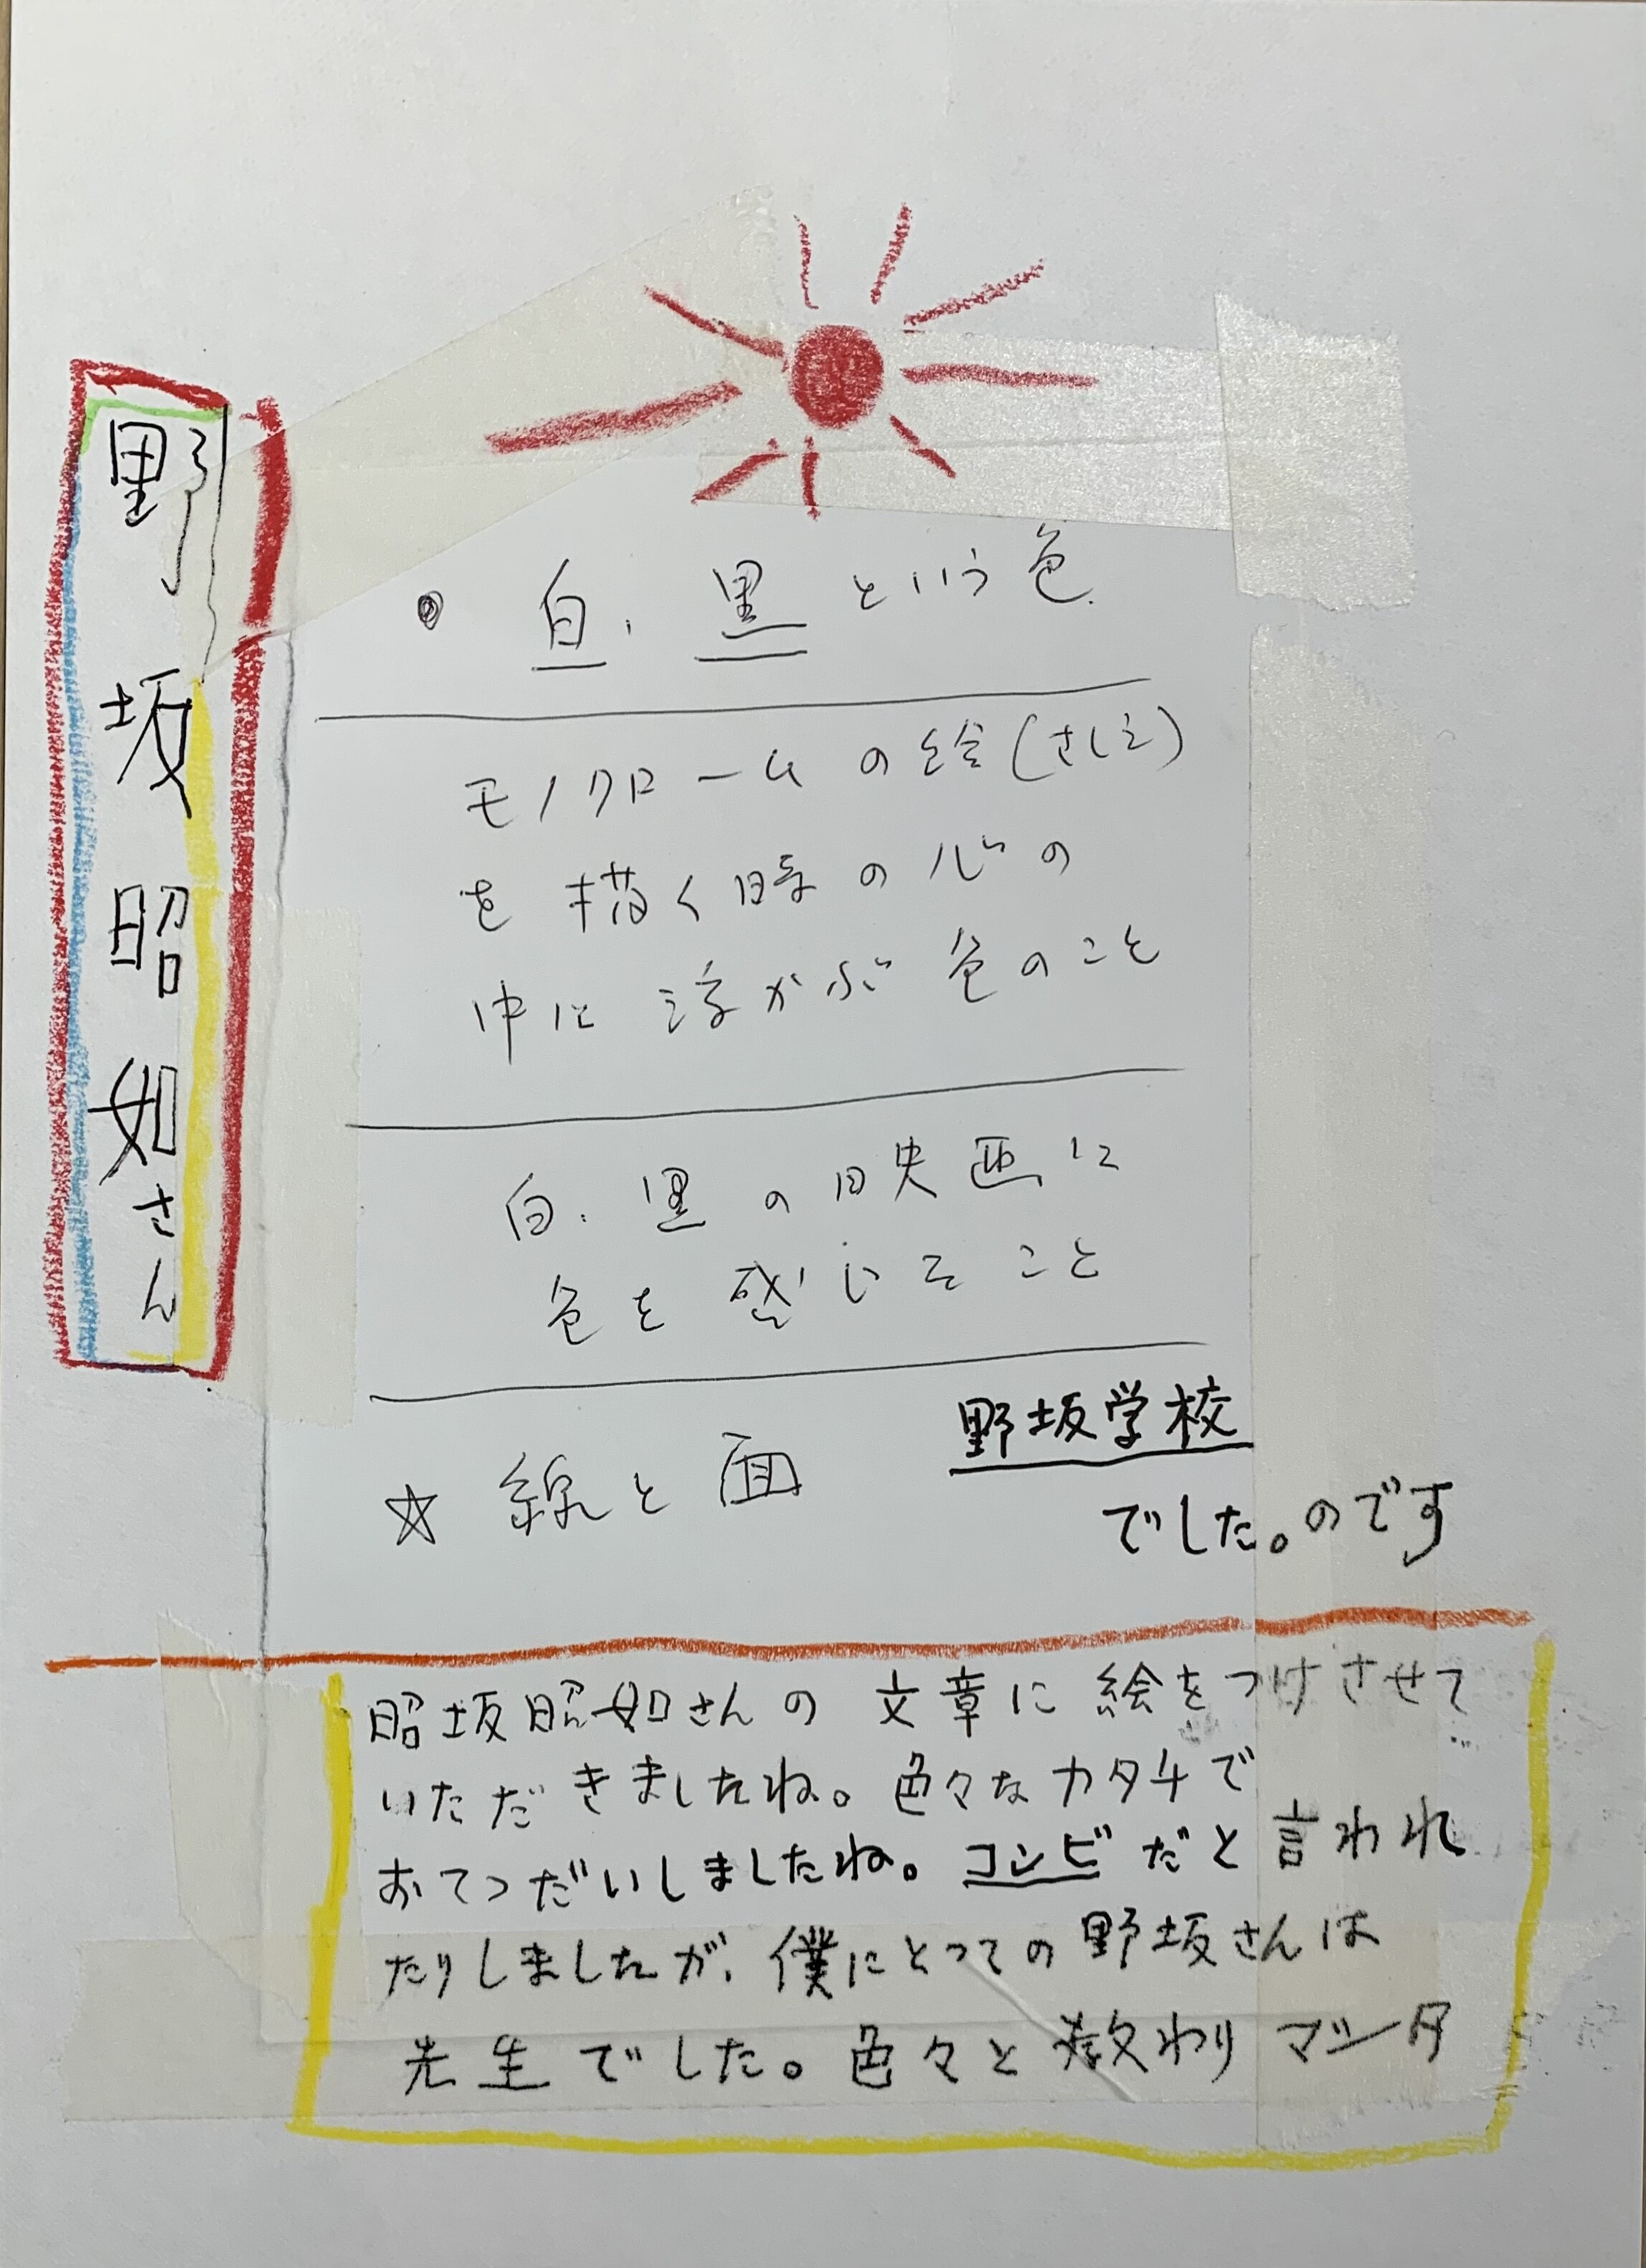 野坂昭如さん
白、黒という色
モノクロームの絵(さしえ)
を描く時の心の
中に浮かぶ色のこと
白、黒の映画に
色を感じること
☆ 線と面
野坂学校
でした。のです
昭坂昭如さんの文章に絵をつけさせて
いただきましたね。色々なカタチで
おてつだいしましたね。コンビだと言われ
たりしましたが、僕にとっての野坂さんは
先生でした。色々と教わりマシタ